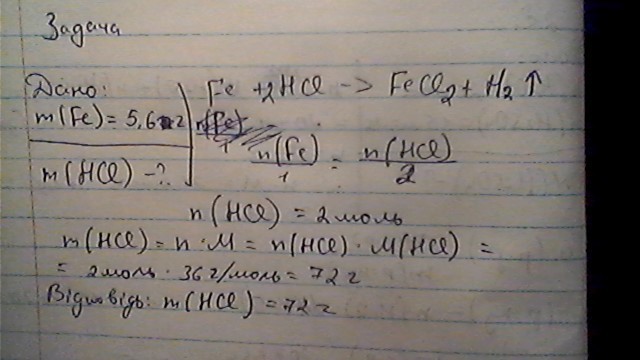 Задача
Дано:
m(Fe) = 5,6 г
m(HCl) - ?
Fe + 2HCl -> FeCl2 + H2 ↑
n(Fe)/1 = n(HCl)/2
n(HCl) = 2 моль
m(HCl) = n · M = n(HCl) · M(HCl) =
= 2 моль · 36 г/моль = 72 г
Відповідь: m(HCl) = 72 г